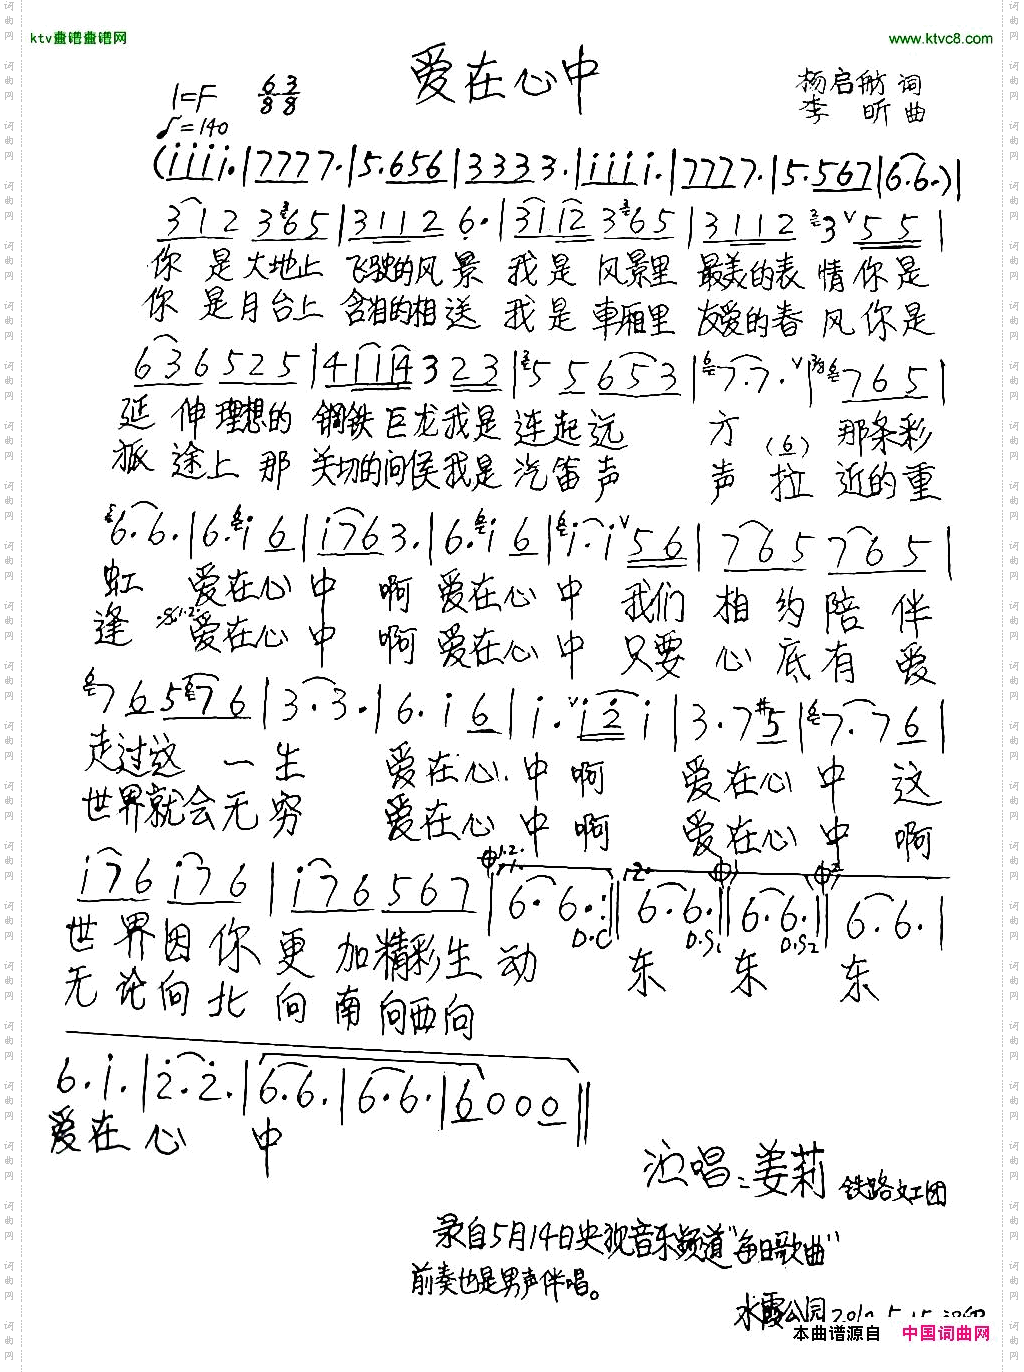 ktv曲谱曲谱网
www.ktvc8.com
爱在心中
杨启舫 词
李昕 曲
1=F 6/8 3/8
♪=140
(i i i i.|7 7 7 7.|5. 6 5 6|3 3 3 3.|i i i i.|7 7 7 7.|5. 5 6 7|6. 6.)|
3 1 2 3 6 5|3 1 1 2 6.|3 1 1 2 3 6 5|3 1 1 2 3 5 5|
你是大地上 飞驶的风景 我是风景里 最美的表情你是
你是月台上 含泪的相送 我是車厢里 友爱的春风你是
6 3 6 5 2 5|4 1 1 4 3 2 3|5 5 6 5 3|7. 7.|7 6 5|
延伸理想的 鋼铁巨龙我是连起远方 那条彩
旅途上那 关切的问侯我是汽笛声声(6)拉近的重
6. 6.|6. i 6|i 7 6 3.|6. i 6|i. i 5 6|7 6 5 7 6 5|
虹 爱在心中啊爱在心中 我们相约陪伴
逢 爱在心中啊爱在心中 只要心底有爱
7 6 5 7 6|3. 3.|6. i 6|i. i 2 i|3. 7 #5|7. 7 6|
走过这一生 爱在心中啊 爱在心中这
世界就会无穷 爱在心中啊 爱在心中啊
i 7 6 i 7 6|i 7 6 5 6 7|6. 6.:|6. 6.|6. 6.|6. 6.|
D.C D.S1 D.S2
世界因你更加精彩生动 东 东 东
无论向北向南向西向
6. i.|2. 2.|6. 6.|6. 6.|6 0 0 0||
爱在心中
演唱:姜莉 铁路文工团
录自5月14日央视音乐频道"每日歌曲"
前奏也是男声伴唱。
水霞公园
本曲谱源自 中国词曲网